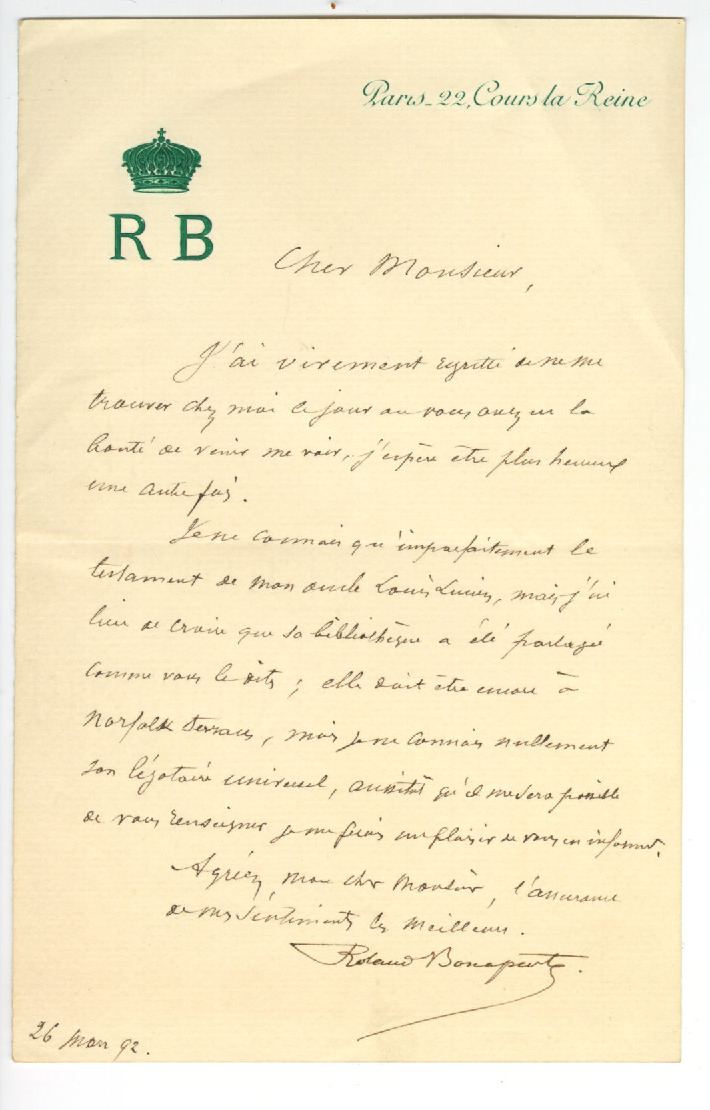 Paris_22, Cours la Reine
R B
Cher Monsieur,
J'ai vivement regretté de ne me
trouver chez moi le jour où vous avez eu la
bonté de venir me voir, j'espère être plus heureux
une autre fois.
Je ne connais qu'imparfaitement le
testament de mon oncle Louis Lucien, mais j'ai
lieu de croire que sa bibliothèque a été partagée
comme vous le dites ; elle doit être encore à
Norfolk Terrace, mais je ne connais nullement
son légataire universel, aussitôt qu'il me sera possible
de vous renseigner je me ferais un plaisir de vous en informer.
Agréez, mon cher Monsieur, l'assurance
de mes sentiments les meilleurs.
Roland Bonaparte.
26 Mars 92.